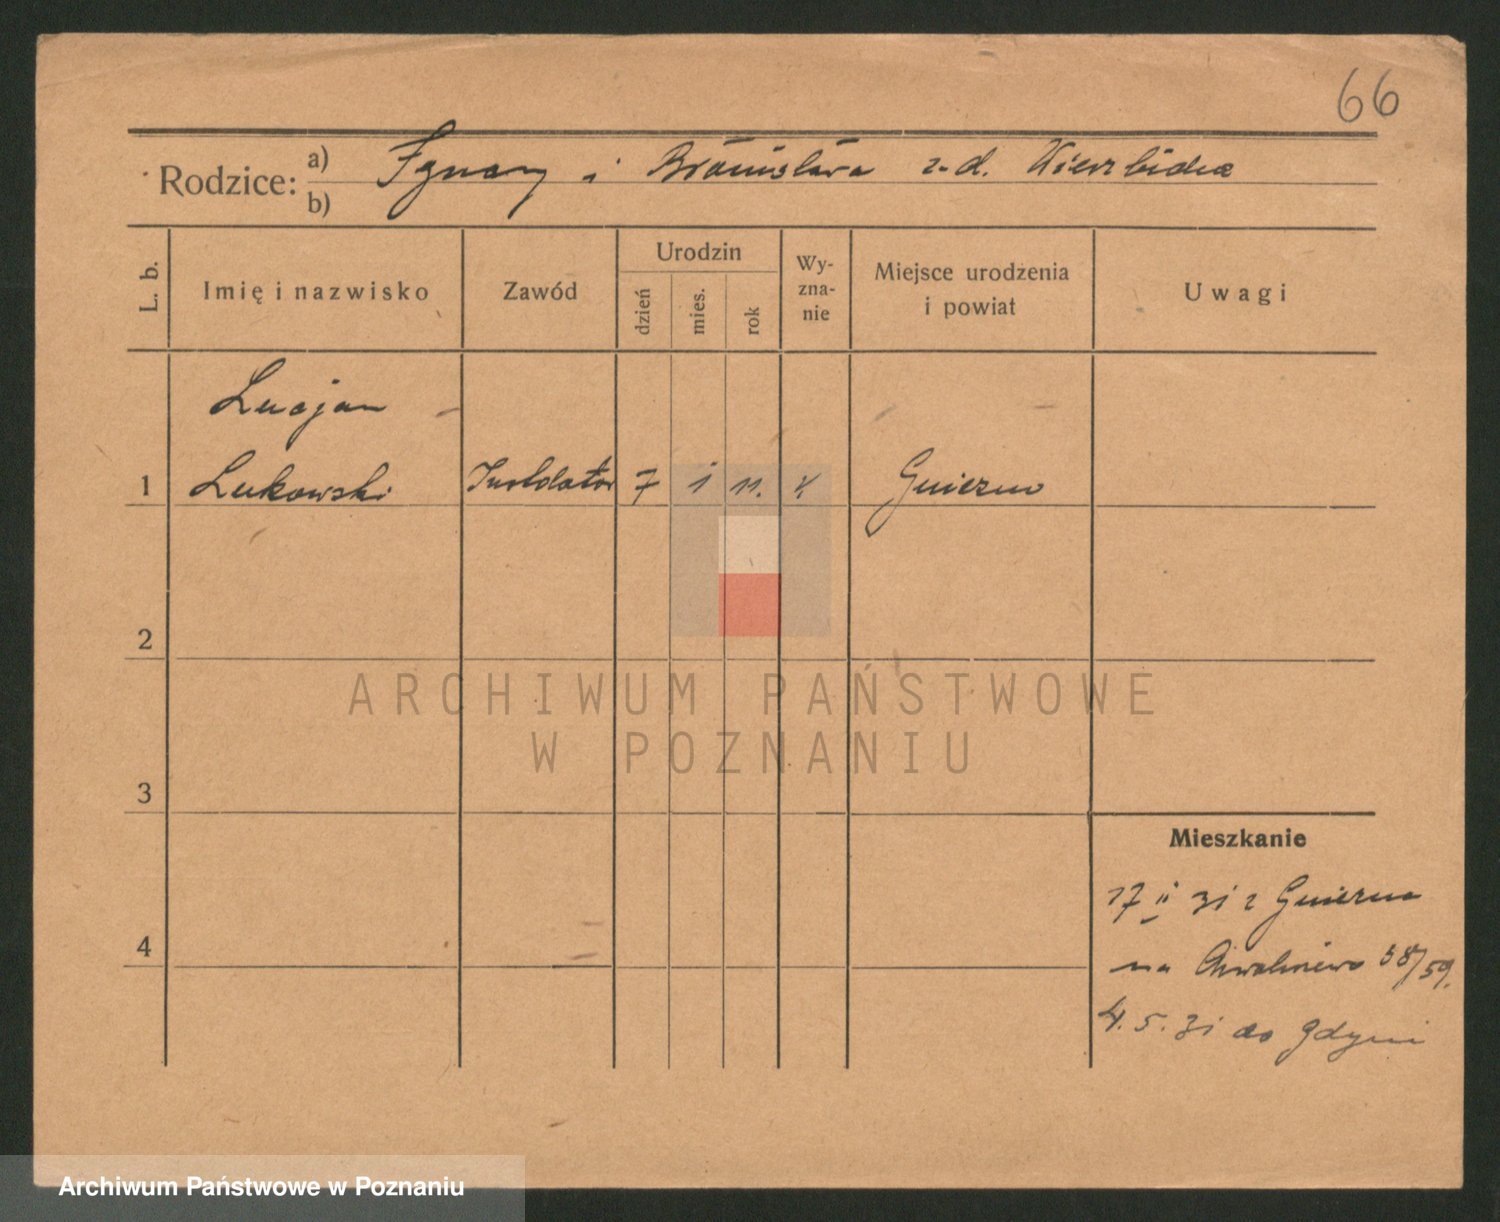 66
Rodzice: a) Ignacy i Bronisława z d. Wierzbicka
b)
L. b. Imię i nazwisko Zawód Urodzin dzień mies. rok Wyznanie Miejsce urodzenia i powiat Uwagi
Lucjan
1 Łukowski Instalator 7 1 11. k Gniezno
2
3
4
Mieszkanie
17 II 31 z Gniezna
na 58/59.
4. 5. 31 do Gdyni
ARCHIWUM PAŃSTWOWE
W POZNANIU
Archiwum Państwowe w Poznaniu